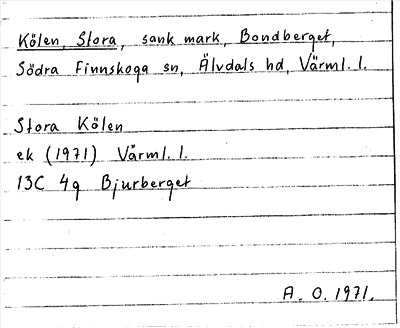 Kölen, Stora, sank mark, Bondberget,
Södra Finnskoga sn, Älvdals hd, Värml. l.
Stora Kölen
ek (1971) Värml. l.
13C 4g Bjurberget
A. O. 1971.